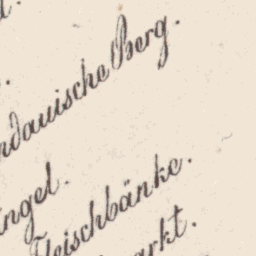 rdauische Berg.
ingel.
Fleischbänke.
arkt.